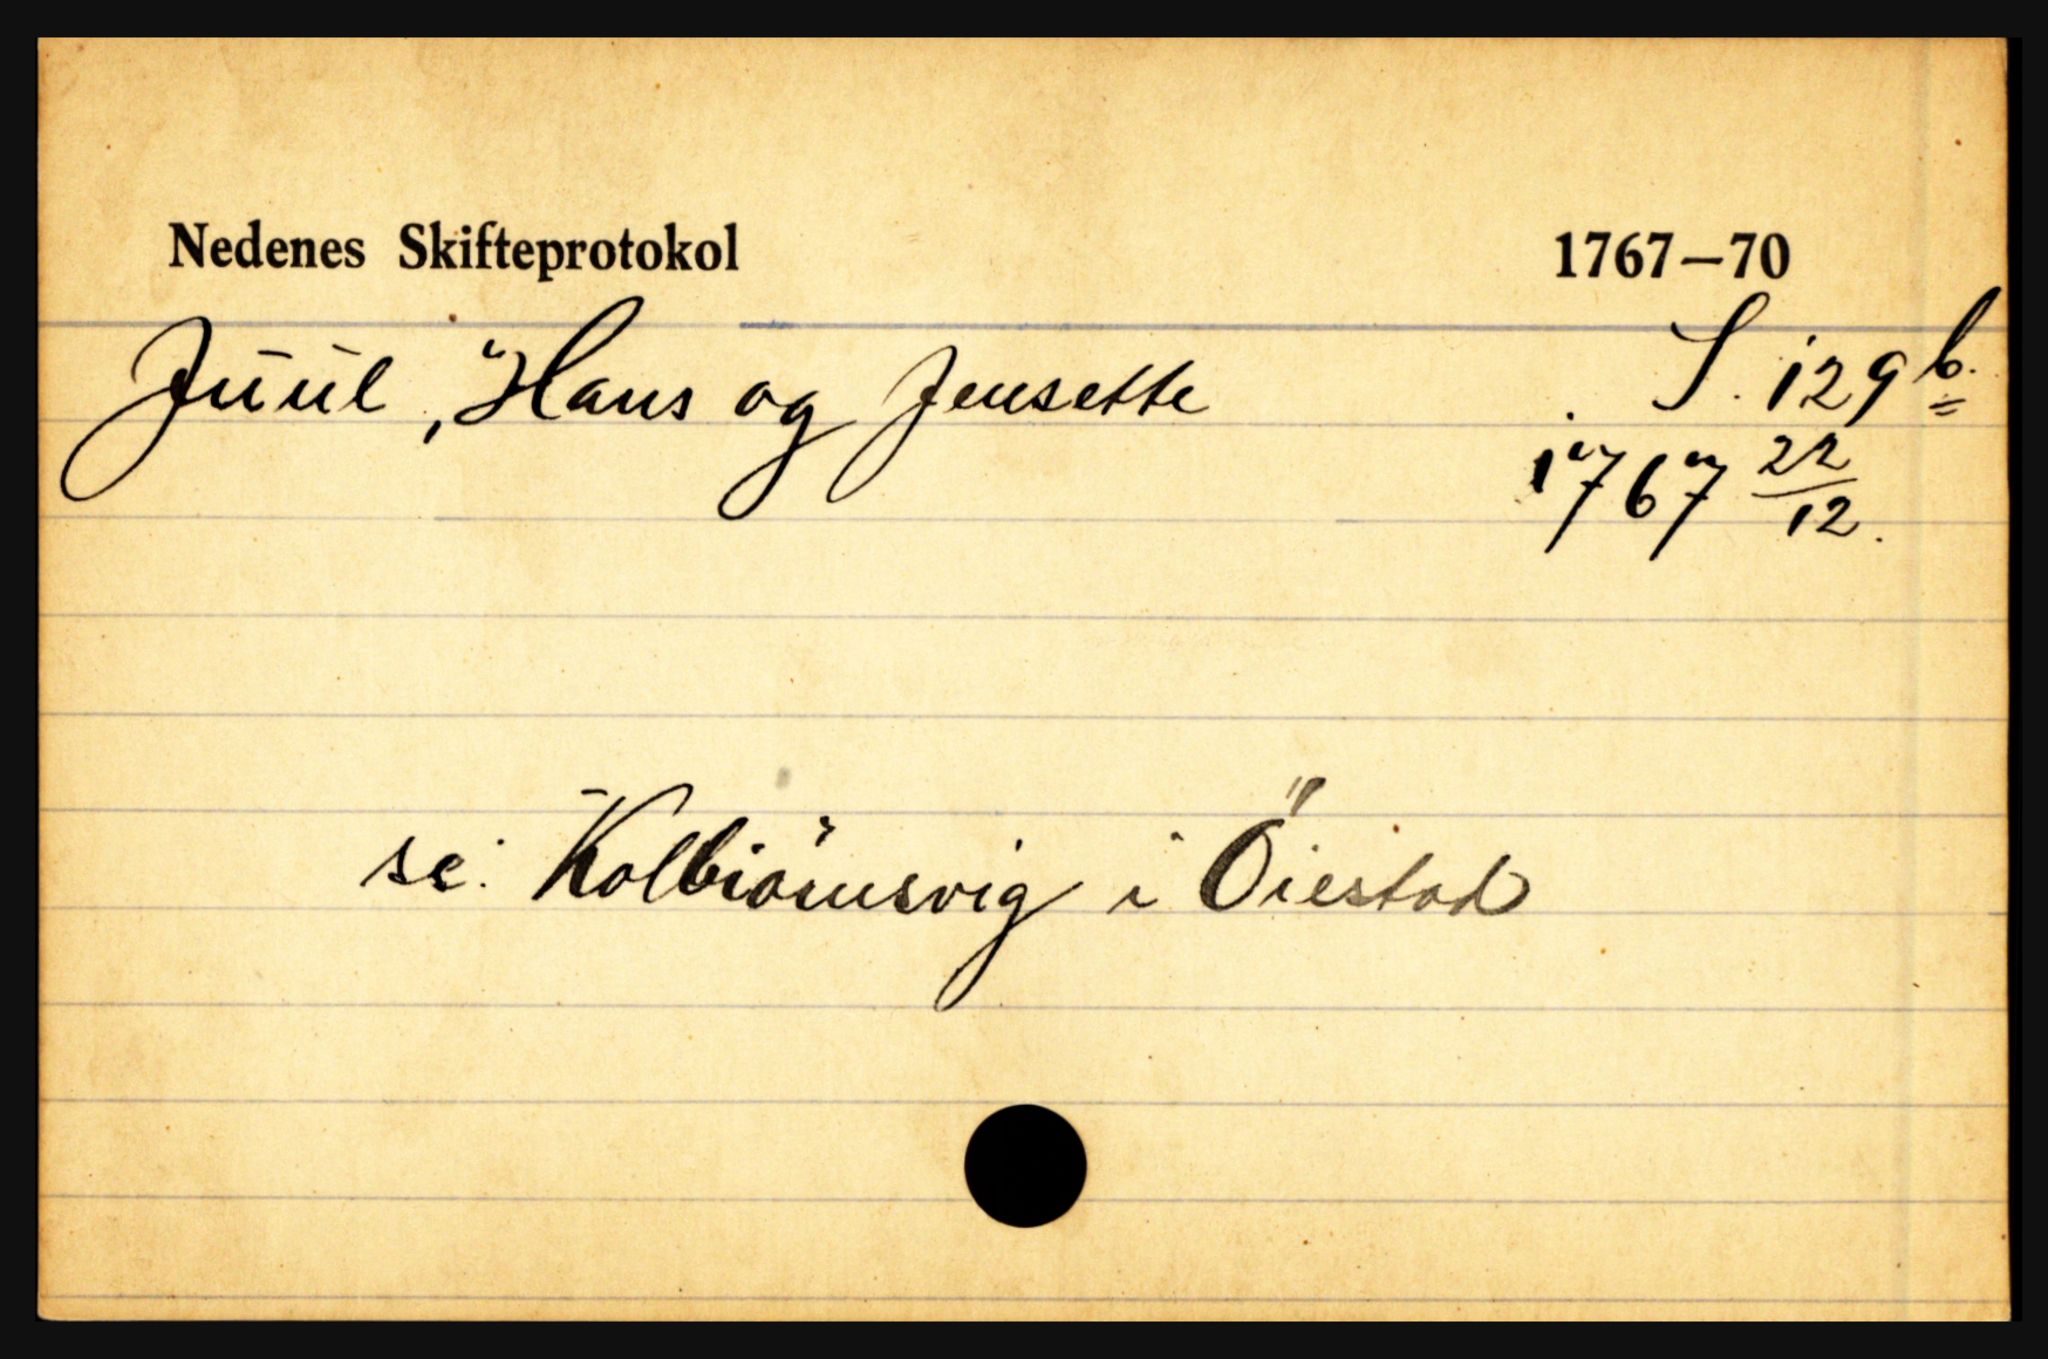 Nedenes Skifteprotokol 1767—70
Juul, Hans og Jensette S. 129 b.
1767 22/12.
se: Kolbiörnsvig i Öiestad